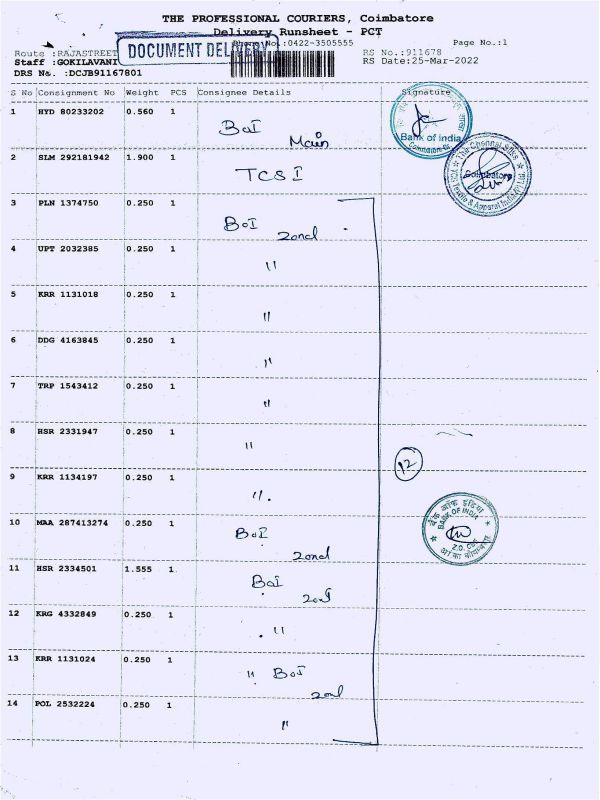 THE PROFESSIONAL COURIERS, Coimbatore
Delivery Runsheet - PCT
DOCUMENT DELIVERY
Phone No.:0422-3505555
Page No.:1
Route :RAJASTREET
RS No.:911678
Staff :GOKILAVANI
RS Date:25-Mar-2022
DRS No. :DCJB91167801
S No Consignment No Weight PCS Consignee Details Signature
1 HYD 80233202 0.560 1 BoI Main
Bank of India
2 SLM 292181942 1.900 1 TCSI
The Chennai Silks
Coimbatore
3 PLN 1374750 0.250 1 BoI zond
4 UPT 2032385 0.250 1 "
5 KRR 1131018 0.250 1 "
6 DDG 4163845 0.250 1 "
7 TRP 1543412 0.250 1 "
8 HSR 2331947 0.250 1 "
12
9 KRR 1134197 0.250 1 "
बैंक ऑफ इंडिया
BANK OF INDIA
10 MAA 287413274 0.250 1 BoI zond
11 HSR 2334501 1.555 1 BoI zond
12 KRG 4332849 0.250 1 "
13 KRR 1131024 0.250 1 " BoI zond
14 POL 2532224 0.250 1 "